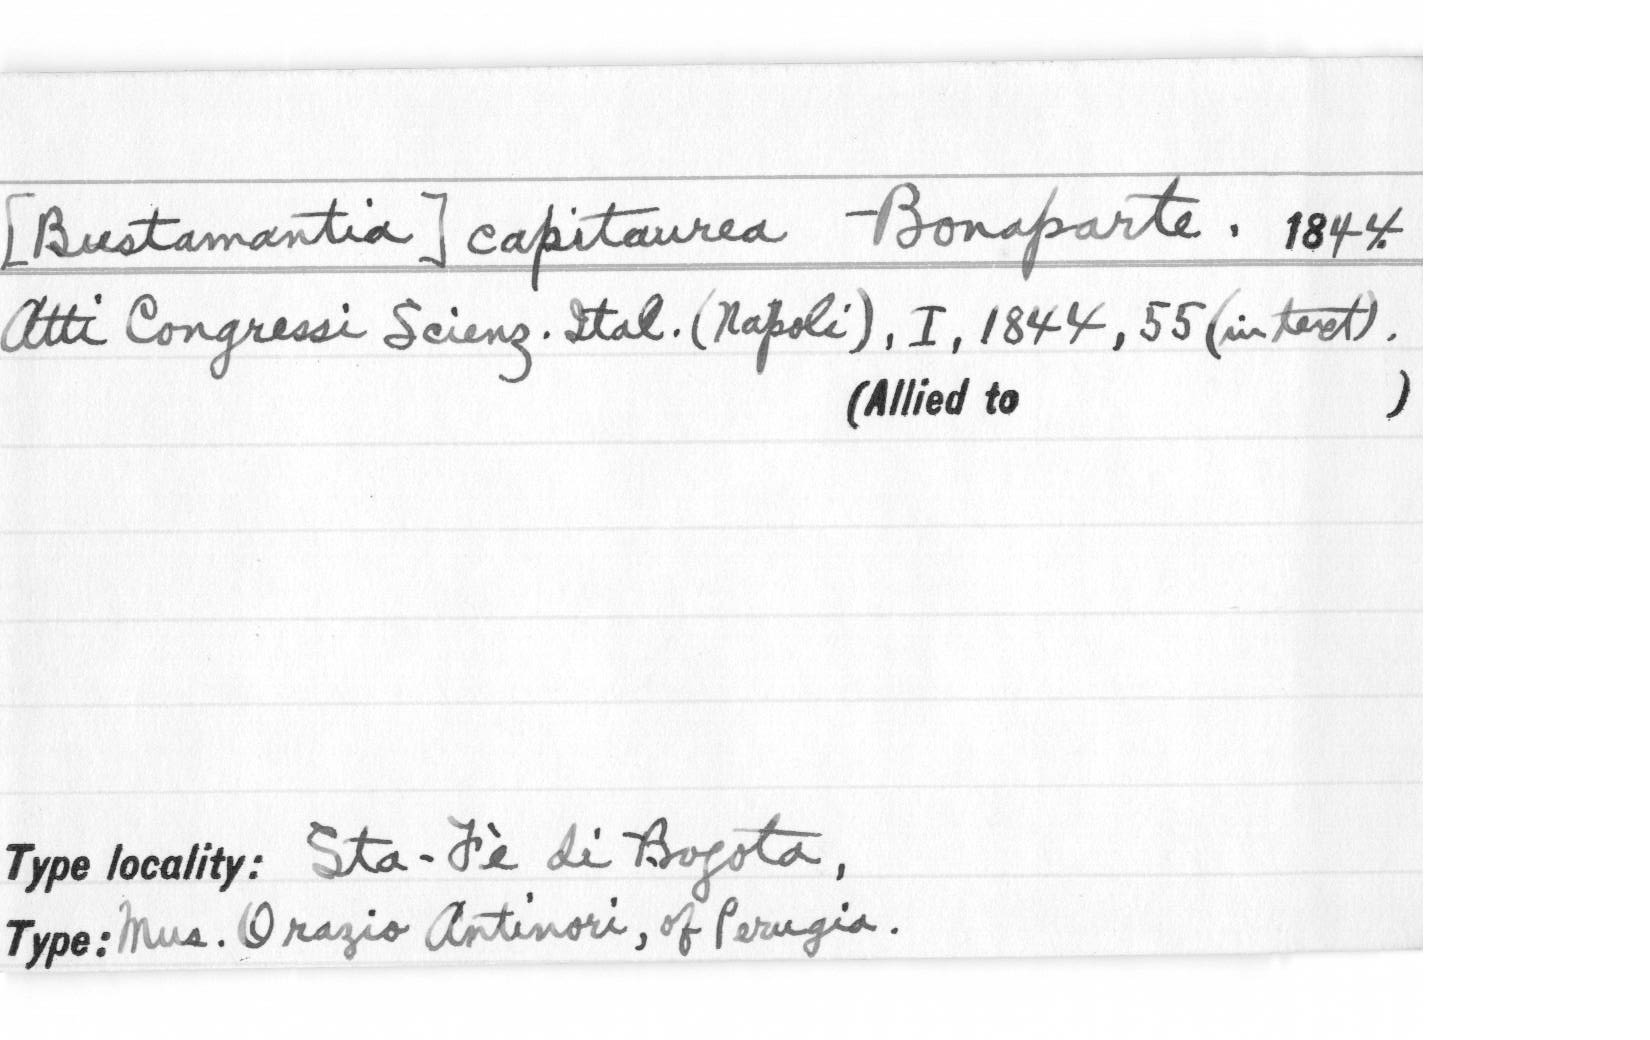 [Bustamantia] capitaurea Bonaparte. 1844.
Atti Congressi Scienz. Ital. (Napoli), I, 1844, 55 (in text).
(Allied to )
Type locality: Sta-Fè di Bogota,
Type: Mus. Orazio Antinori, of Perugia.